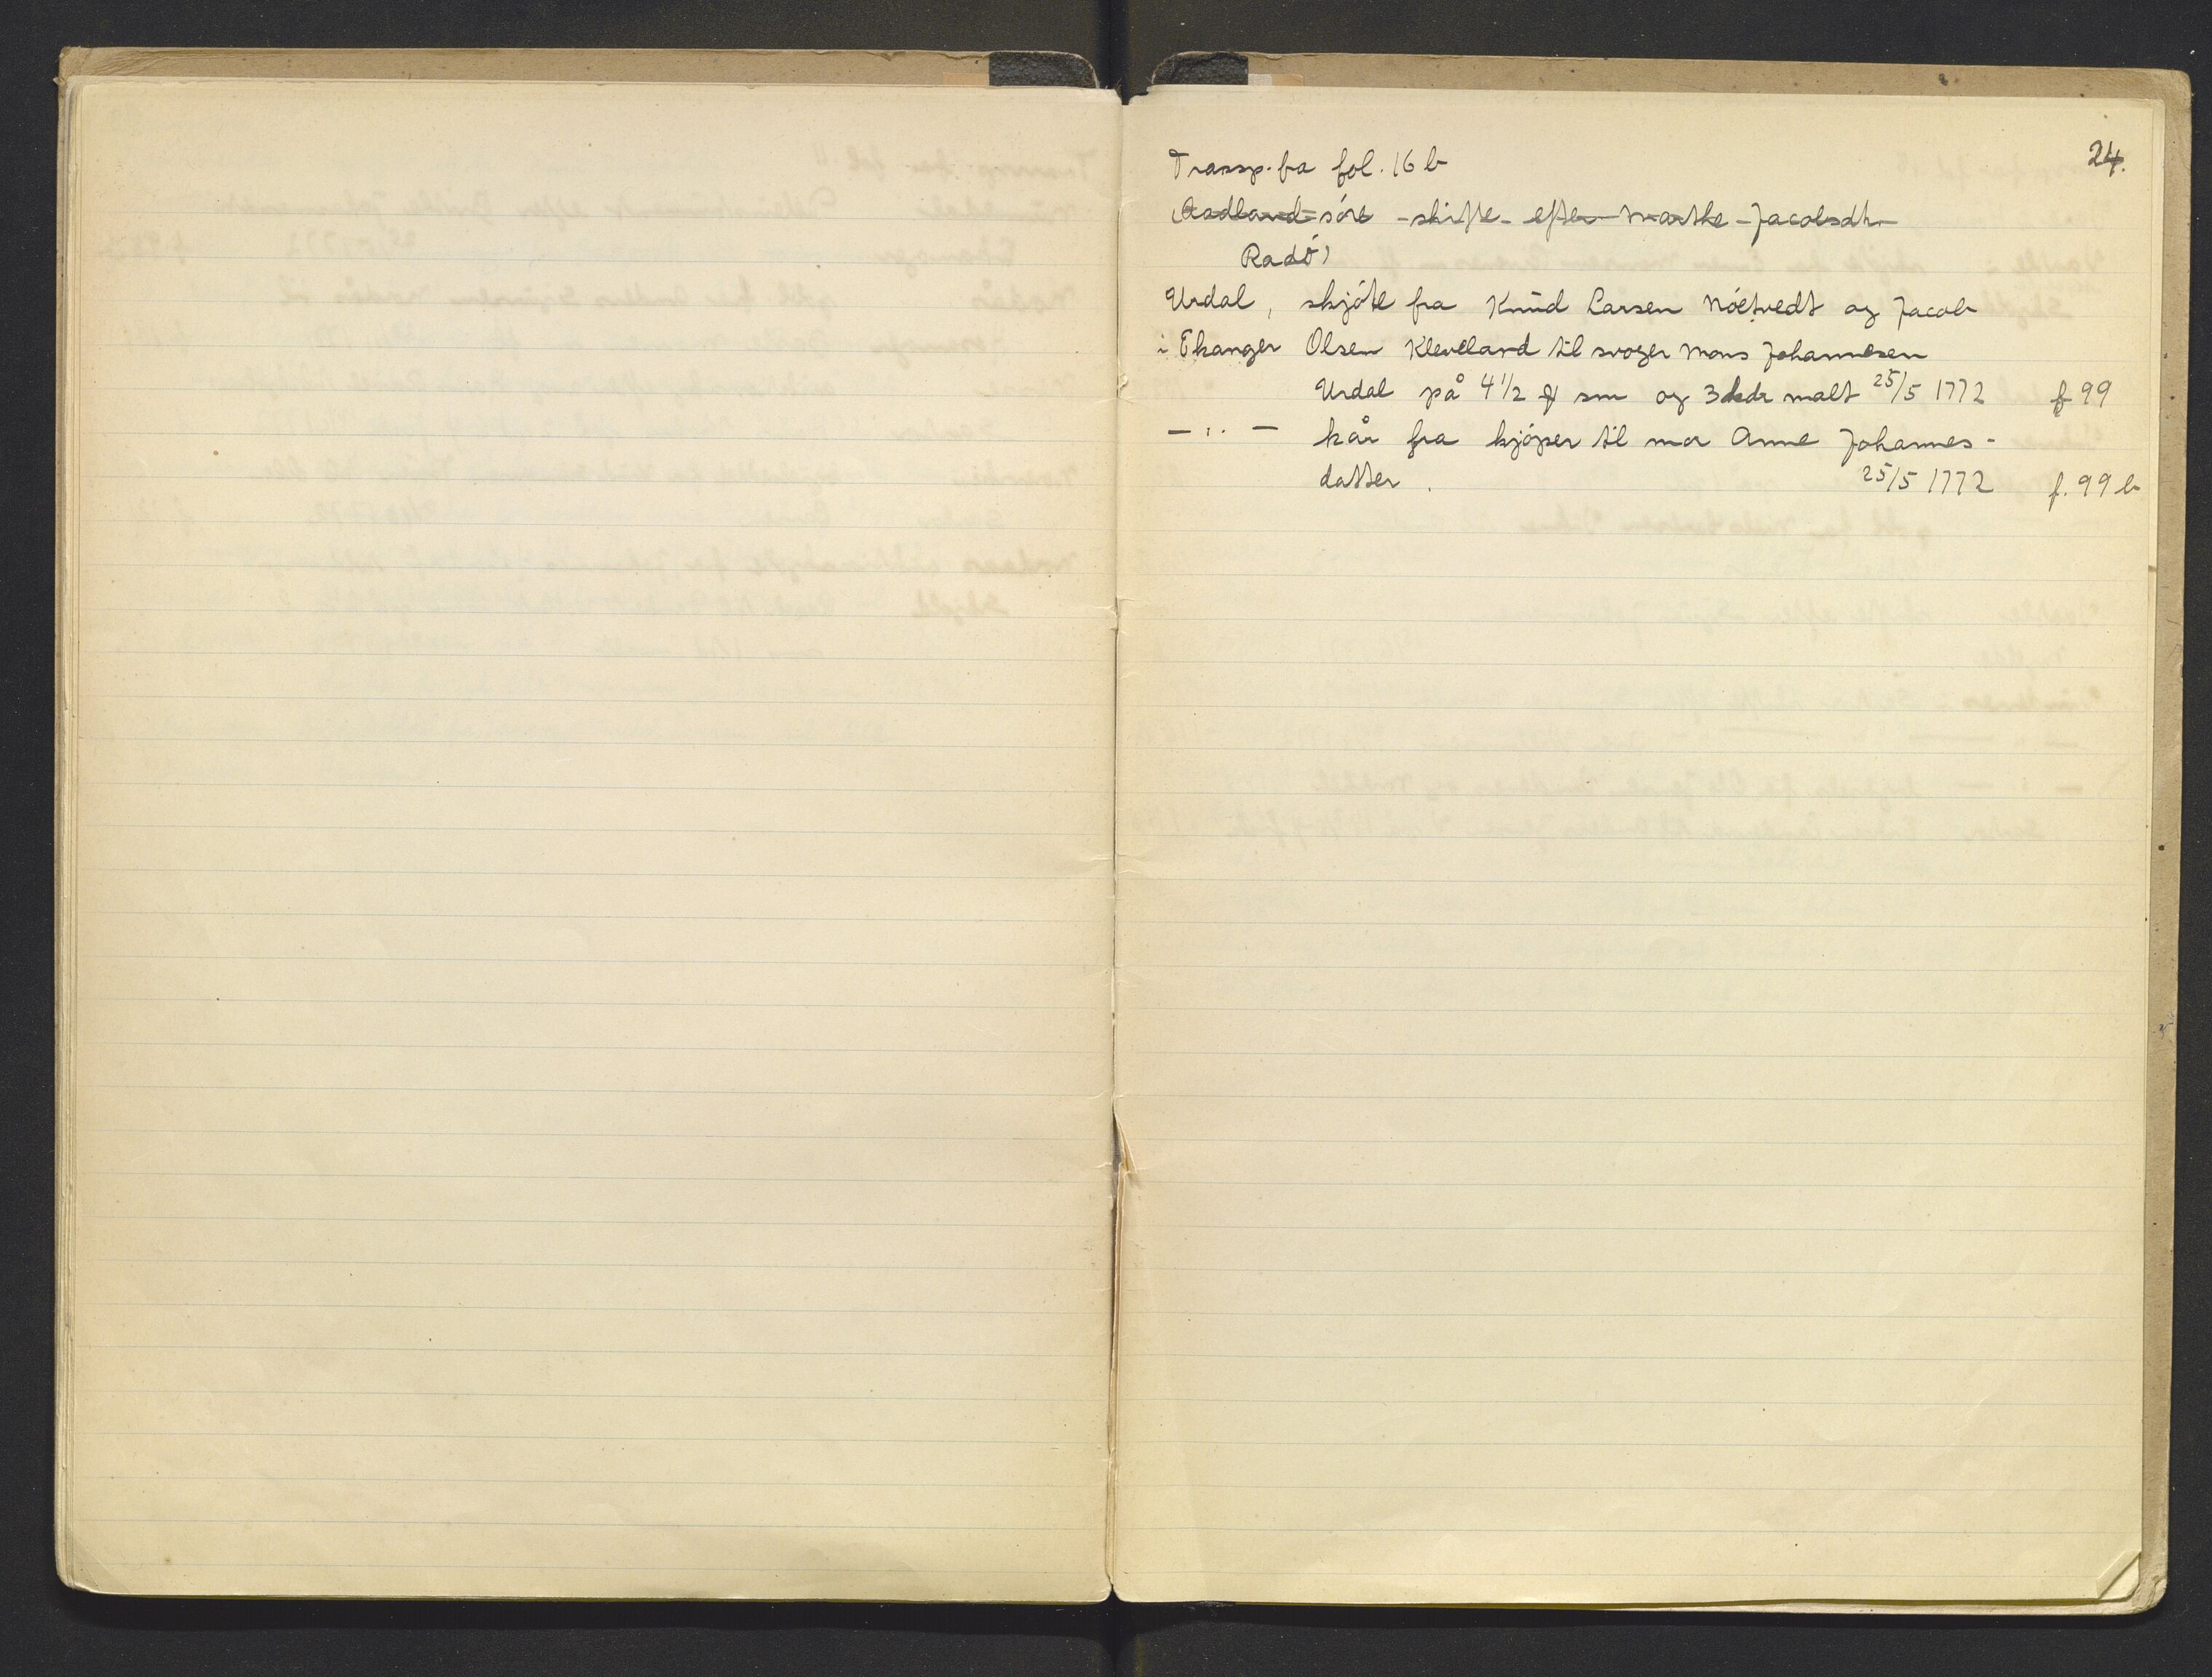 24.
Transp. fra fol. 16 b
(Aadland søre - skifte - efter Marthe - Jacobsdtr.
Radö)
Urdal, skjöte fra Knud Larsen Nöetvedt og Jacob
i Ekanger Olsen Kleveland til svoger Mons Johannesen
Urdal på 4 1/2 sm og 3 kdr malt 25/5 1772 f 99
— „ — kår fra kjöper til mor Anne Johannes-
datter. 25/5 1772 f. 99 b